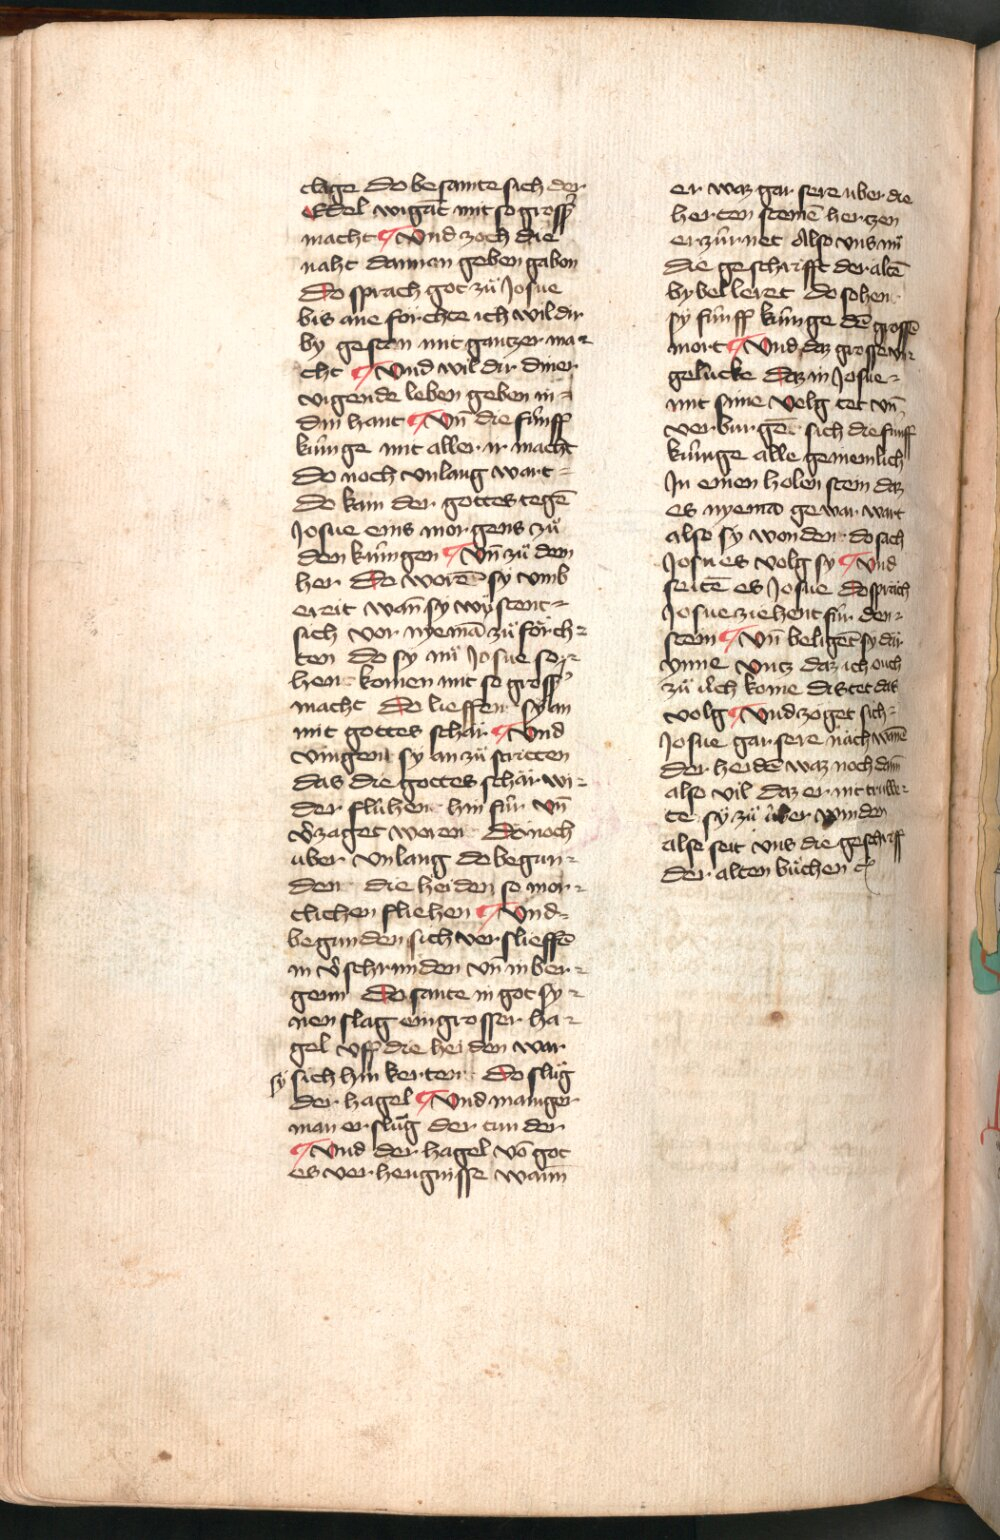 clage do besamte sich der
Edel wigāt mit so grossꝰ
macht ¶ Vnd zoch die
naht dannen geben gabon
Do sprach got zuͦ Josue
bis ane foͤrchte ich wil dir
by gesten mit gantzer ma⸗
cht ¶ Vnd wil dir diner
vigende leben geben in⸗
din hant ¶ Vn̄ die fünff
künige mit aller ir macht
do noch vnlang wart⸗
do kam der gottes tegē
Josue eins morgens zuͦ
den künigen ¶ Vn̄ zuͦ dem
her Do worē sy vmb
ereit wan̄ sy wystent⸗
sich vor nyemā zuͦ foͤrch⸗
ten do sy nuͦ Josue so⸗
hent komen mit so grossꝰ
macht Do lieffen sy an
mit gottes schar ¶ Vnd
vingent sy an zuͦ stritten
das die gottes schar wi⸗
der fluhen hin für vn̄
v̄zaget woren Dānoch
aber vnlang do begun⸗
den die heiden so mor⸗
tlichen fliehen ¶ Vnd⸗
begunden sich verslieffē
in v̄schrunden vn̄ in ber⸗
genn Do sante in got sy⸗
nen slag ein grosser ha⸗
gel vff die heiden war
sy sich hin kerten Do sluͦg
der hagel ¶ Vnd maniger
man er sluͦg der under
¶ Vnd der hagel vō got
es verhengnisse wann
er waz gar sere uber die
herten steinē hertzen
erzürnet Also vns nuͦ
die geschrifft der altē
bybel leret do sohen
sy fünff künige dē grossē
mort ¶ Vnd daz grosse vn⸗
gelücke Daz in Josue⸗
mit sime volg tet vn̄
verburgēt sich die fünff
künige alle gemeinlich
In einen holen stein daz
es nyemā gewar wart
also sy wonden do sich
Josues volg sy ¶ Vnd
seitē es Josue Do sprach
Josue ziehent für den⸗
stein ¶ Vn̄ beligēt sy dar
ynne vntz daz ich ouch
zuͦ üch kome dis tet das
volg ¶ Vnd zoget sich⸗
Josue gar sere nach wānē
der heidē waz noch dān
also vil daz er nit truwe⸗
te sy zuͦ über winden
alse seit vns die geschrifft
der alten büchen